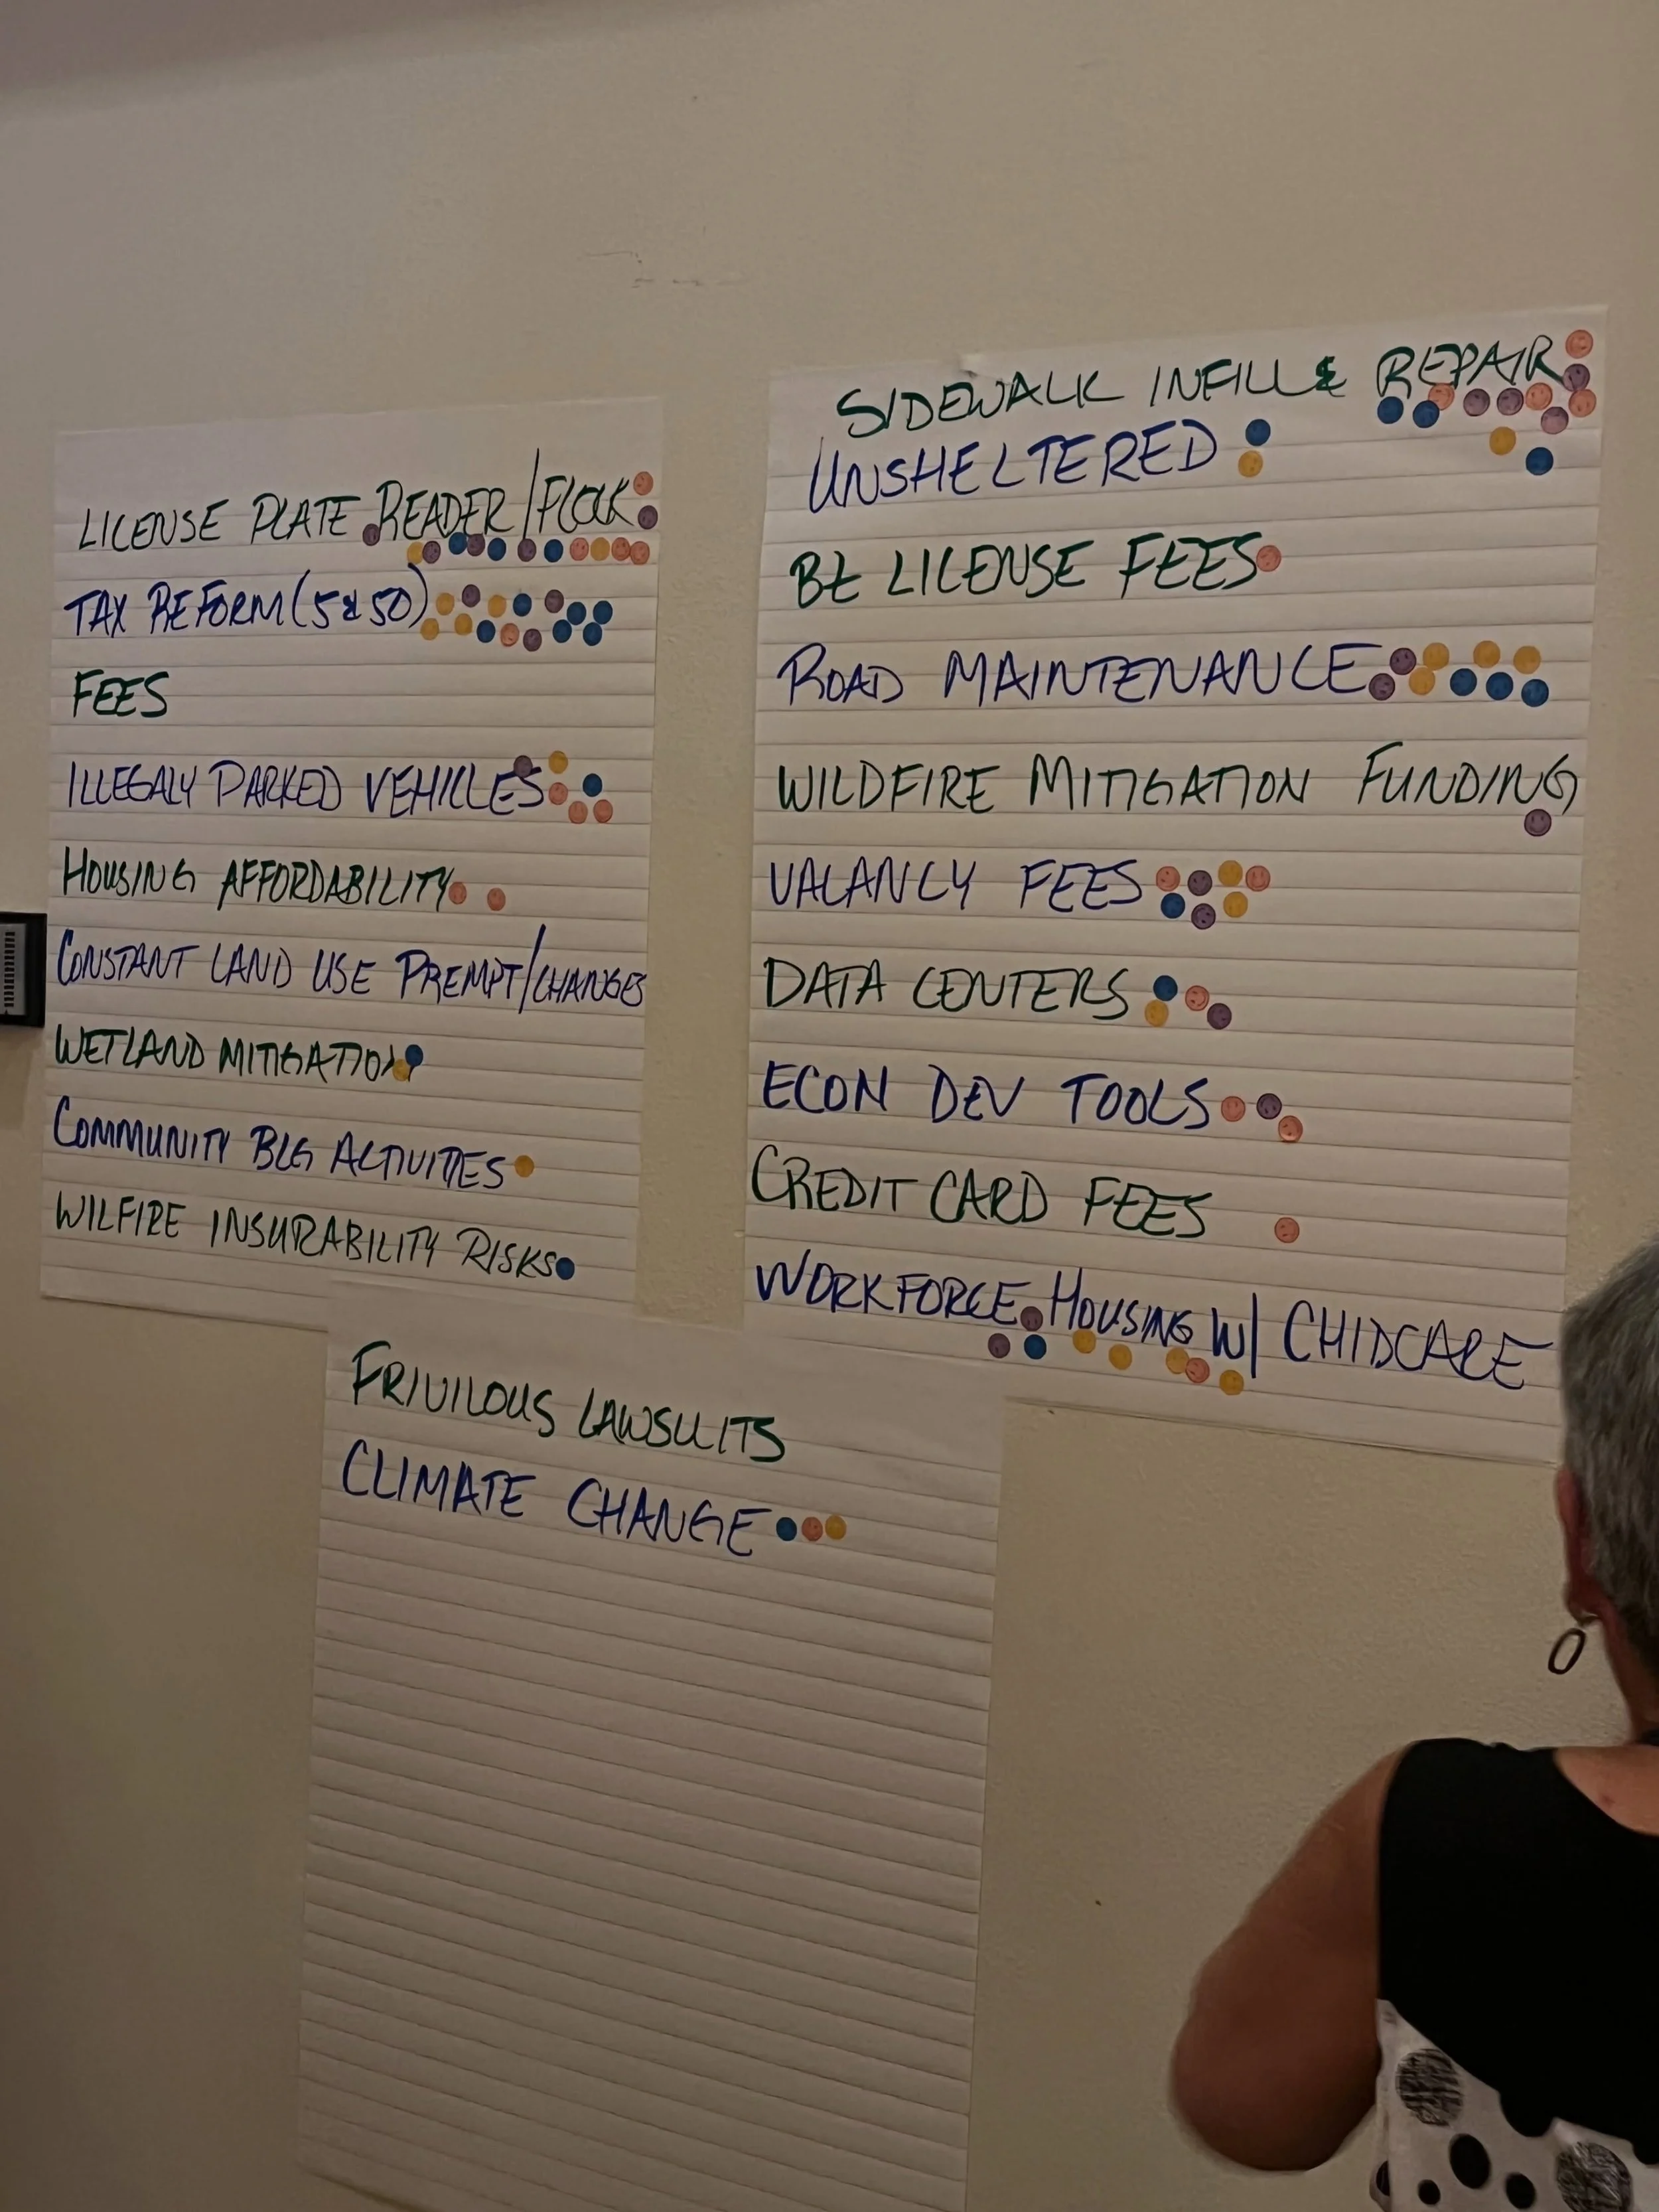 LICENSE PLATE READER/FLOCK
TAX REFORM (5 & 50)
FEES
ILLEGALY PARKED VEHICLES
HOUSING AFFORDABILITY
CONSTANT LAND USE PREMPT/CHANGES
WETLAND MITIGATION
COMMUNITY BLG ACTIVITIES
WILFIRE INSURABILITY RISKS
SIDEWALK INFILL & REPAIR
UNSHELTERED
LICENSE FEES
ROAD MAINTENANCE
WILDFIRE MITIGATION FUNDING
VACANCY FEES
DATA CENTERS
ECON DEV TOOLS
CREDIT CARD FEES
WORKFORCE HOUSING W/ CHIDCARE
FRIVILOUS LAWSUITS
CLIMATE CHANGE